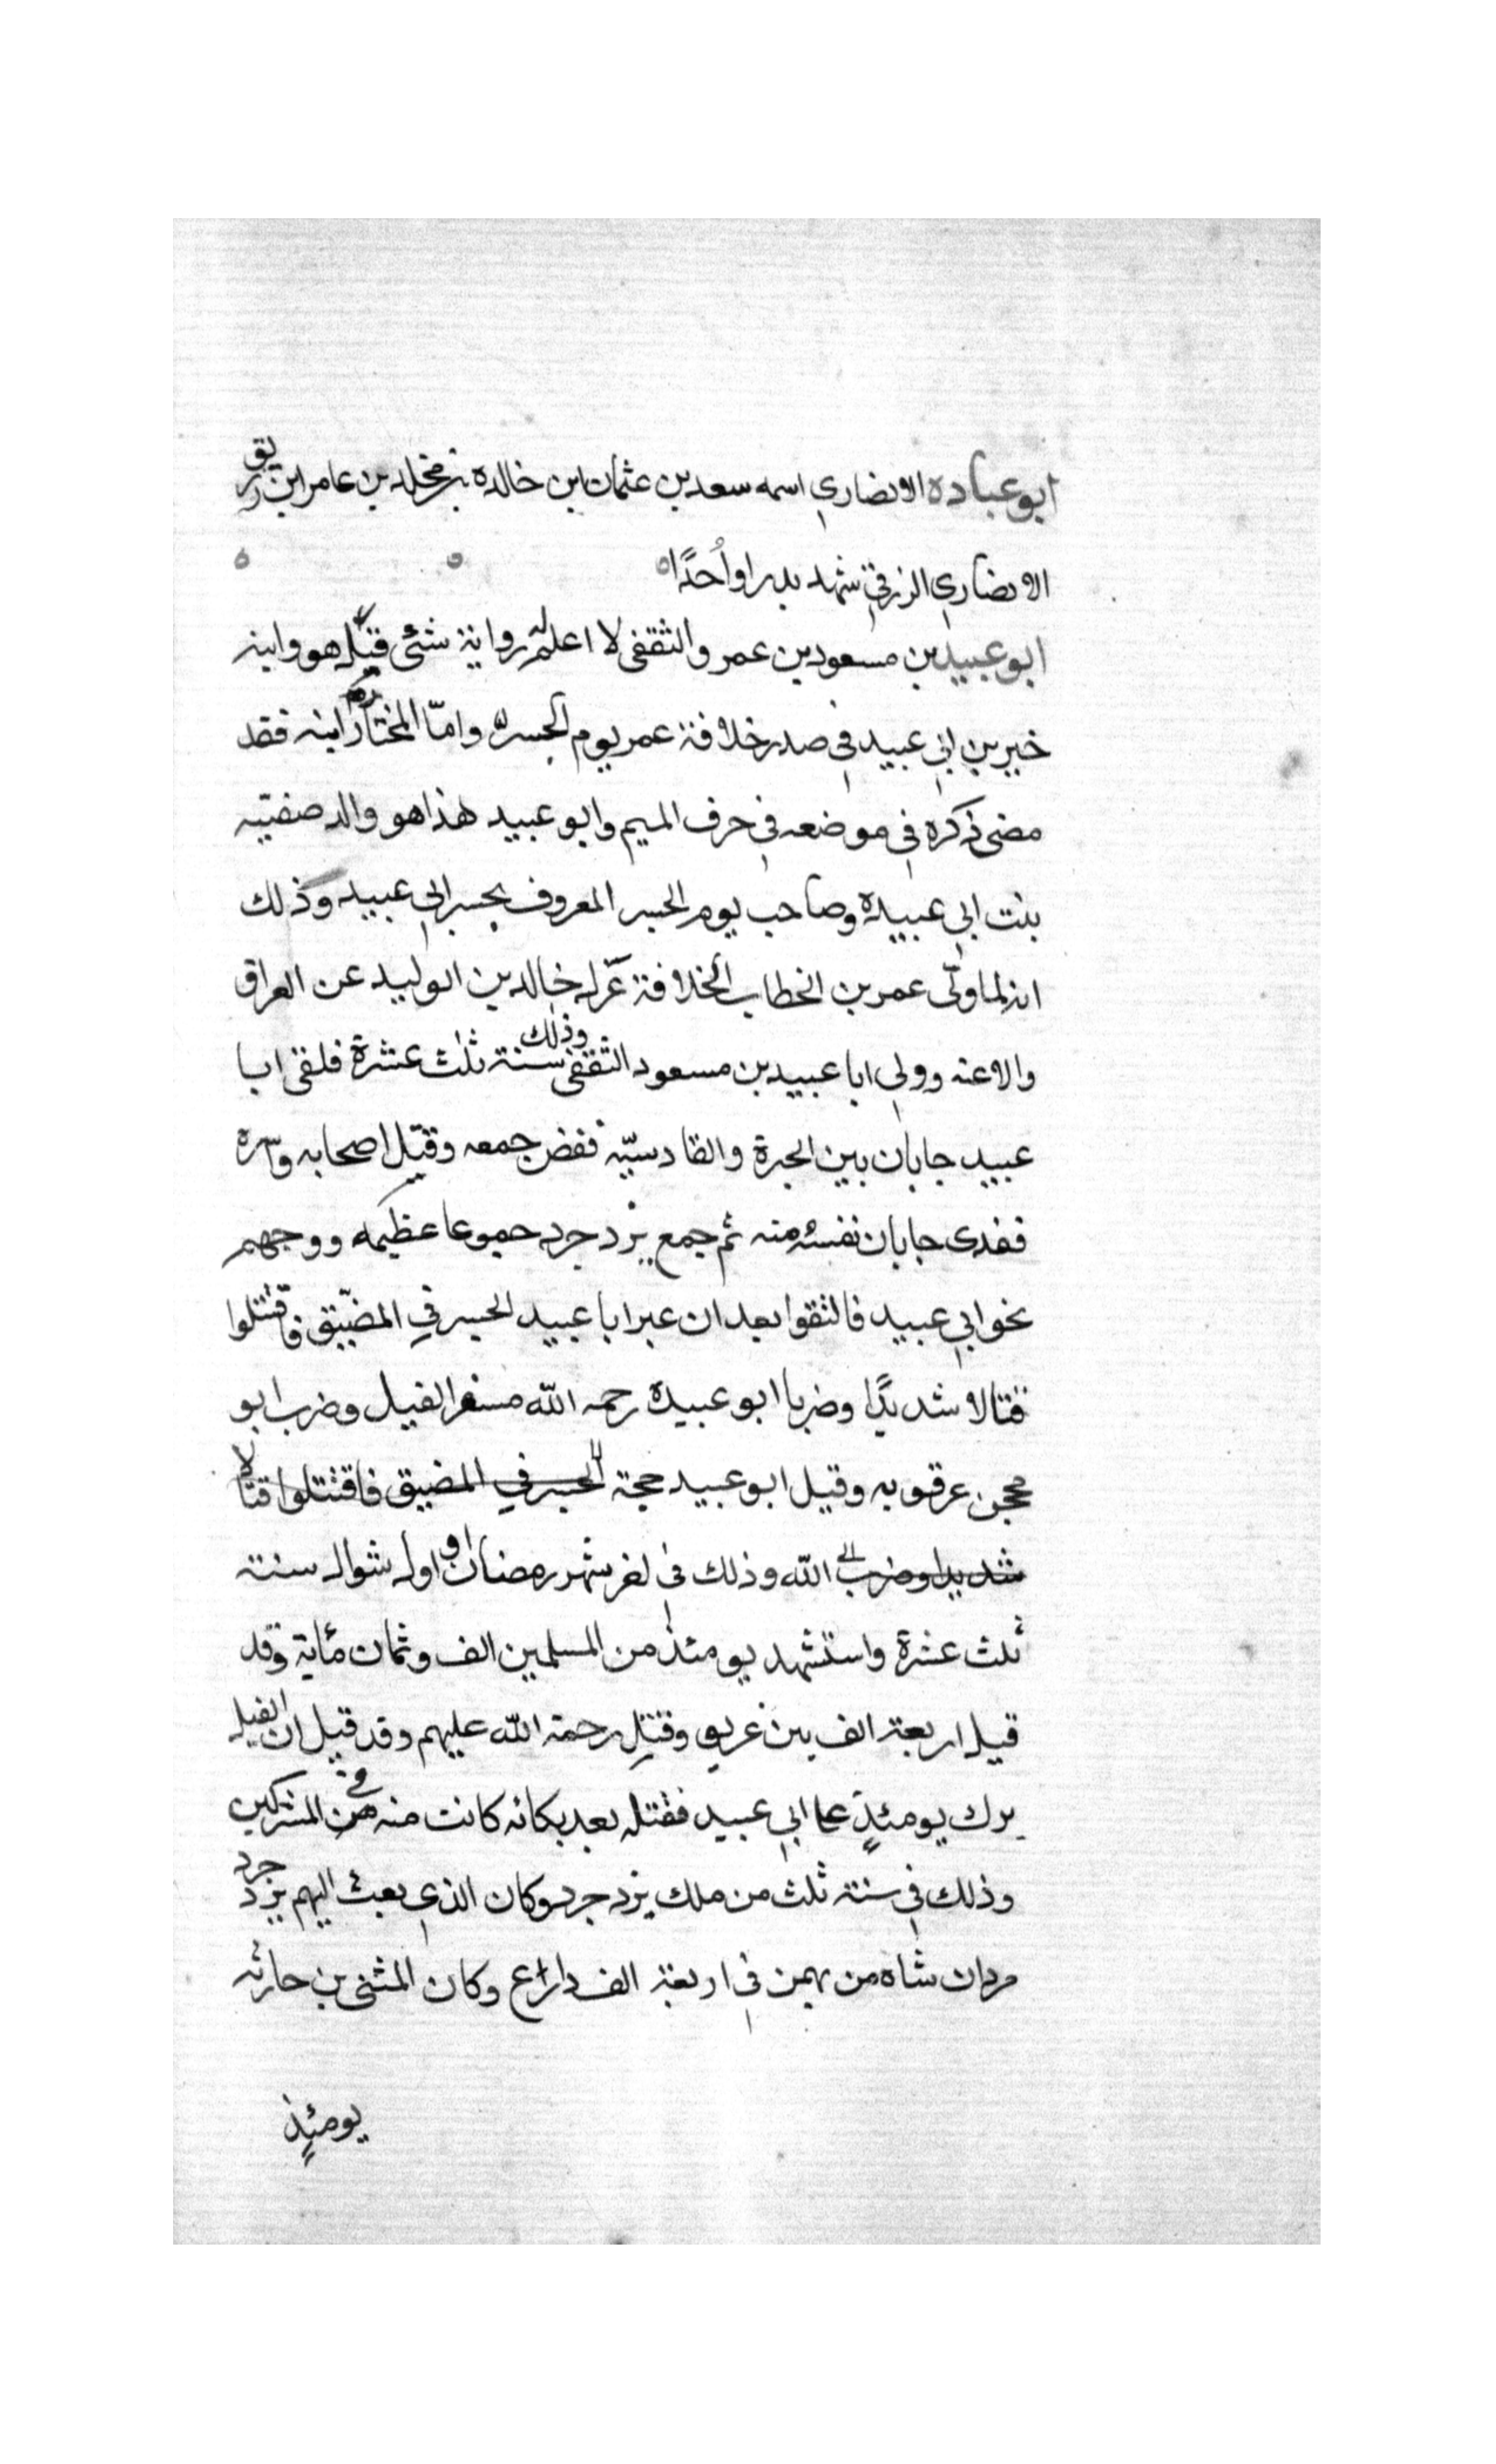 ابو عبادة الانصاري اسمه سعد بن عثمان ابن خالده بن مخلد بن عامر ابن زريق
الانصاري الزرقي شهد بدرا واُحدًا
ابو عبيد بن مسعود بن عمر والثقفى لا اعلم له رواية شئى قتل هو وابنه
خير بن ابي عبيد في صدر خلافة عمر يوم الجسر وامّا المختار ابنه فقد
مضى ذكره في موضعه في حرف الميم وابو عبيد هذا هو والد صفيّه
بنت ابي عبيدة وصاحب يوم الجسر المعروف بجسر ابي عبيد وذلك
انه لما ولّى عمر بن الخطاب الخلافة عزل خالد بن الوليد عن العراق
والاعنه وولي ابا عبيد بن مسعود الثقفى وذلك سنة ثلث عشرة فلقى ابا
عبيد جابان بين الحيرة والقادسيّه ففض جمعه وقتل اصحابه واسره
ففدى جابان نفسه منه ثم جمع يزد جرد جموعا عظيمه ووجههم
نحو ابي عبيد فالتقوا بعد ان عبر ابا عبيد الجسر في المضيق فاقتتلوا
قتالا شديدًا وضربا ابو عبيدة رحمه الله مشفر الفيل وضرب ابو
محجن عرقوبه وقيل ابو عبيد حجة الجسر في المضيق فاقتتلوا قتالا
شديدا وضرب الى الله وذلك في اخر شهر رمضان او اول شوال سنة
ثلث عشرة واستشهد يومئذ من المسلمين الف وثمان مائة وقد
قيل اربعة الف بين غريق وقتيل رحمة الله عليهم وقد قيل ان الفيل
برك يومئذٍ على ابي عبيد فقتله بعد بكانه كانت منه في المشركين
وذلك في سنة ثلث من ملك يزد جرد وكان الذي بعث اليهم يزد جرد
مردان شاه من بهمن في اربعة الف دارع وكان المثنى بن حارثه
يومئذٍ